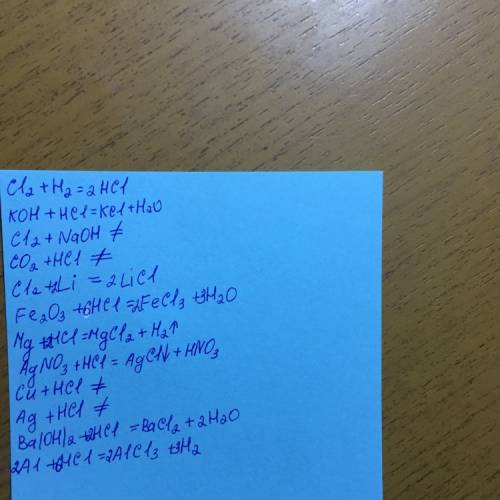 Cl2 + H2 = 2HCl
KOH + HCl = KCl + H2O
Cl2 + NaOH ≠
CO2 + HCl ≠
Cl2 + 2Li = 2LiCl
Fe2O3 + 6HCl = 2FeCl3 + 3H2O
Mg + 2HCl = MgCl2 + H2↑
AgNO3 + HCl = AgCl↓ + HNO3
Cu + HCl ≠
Ag + HCl ≠
Ba(OH)2 + 2HCl = BaCl2 + 2H2O
2Al + 6HCl = 2AlCl3 + 3H2